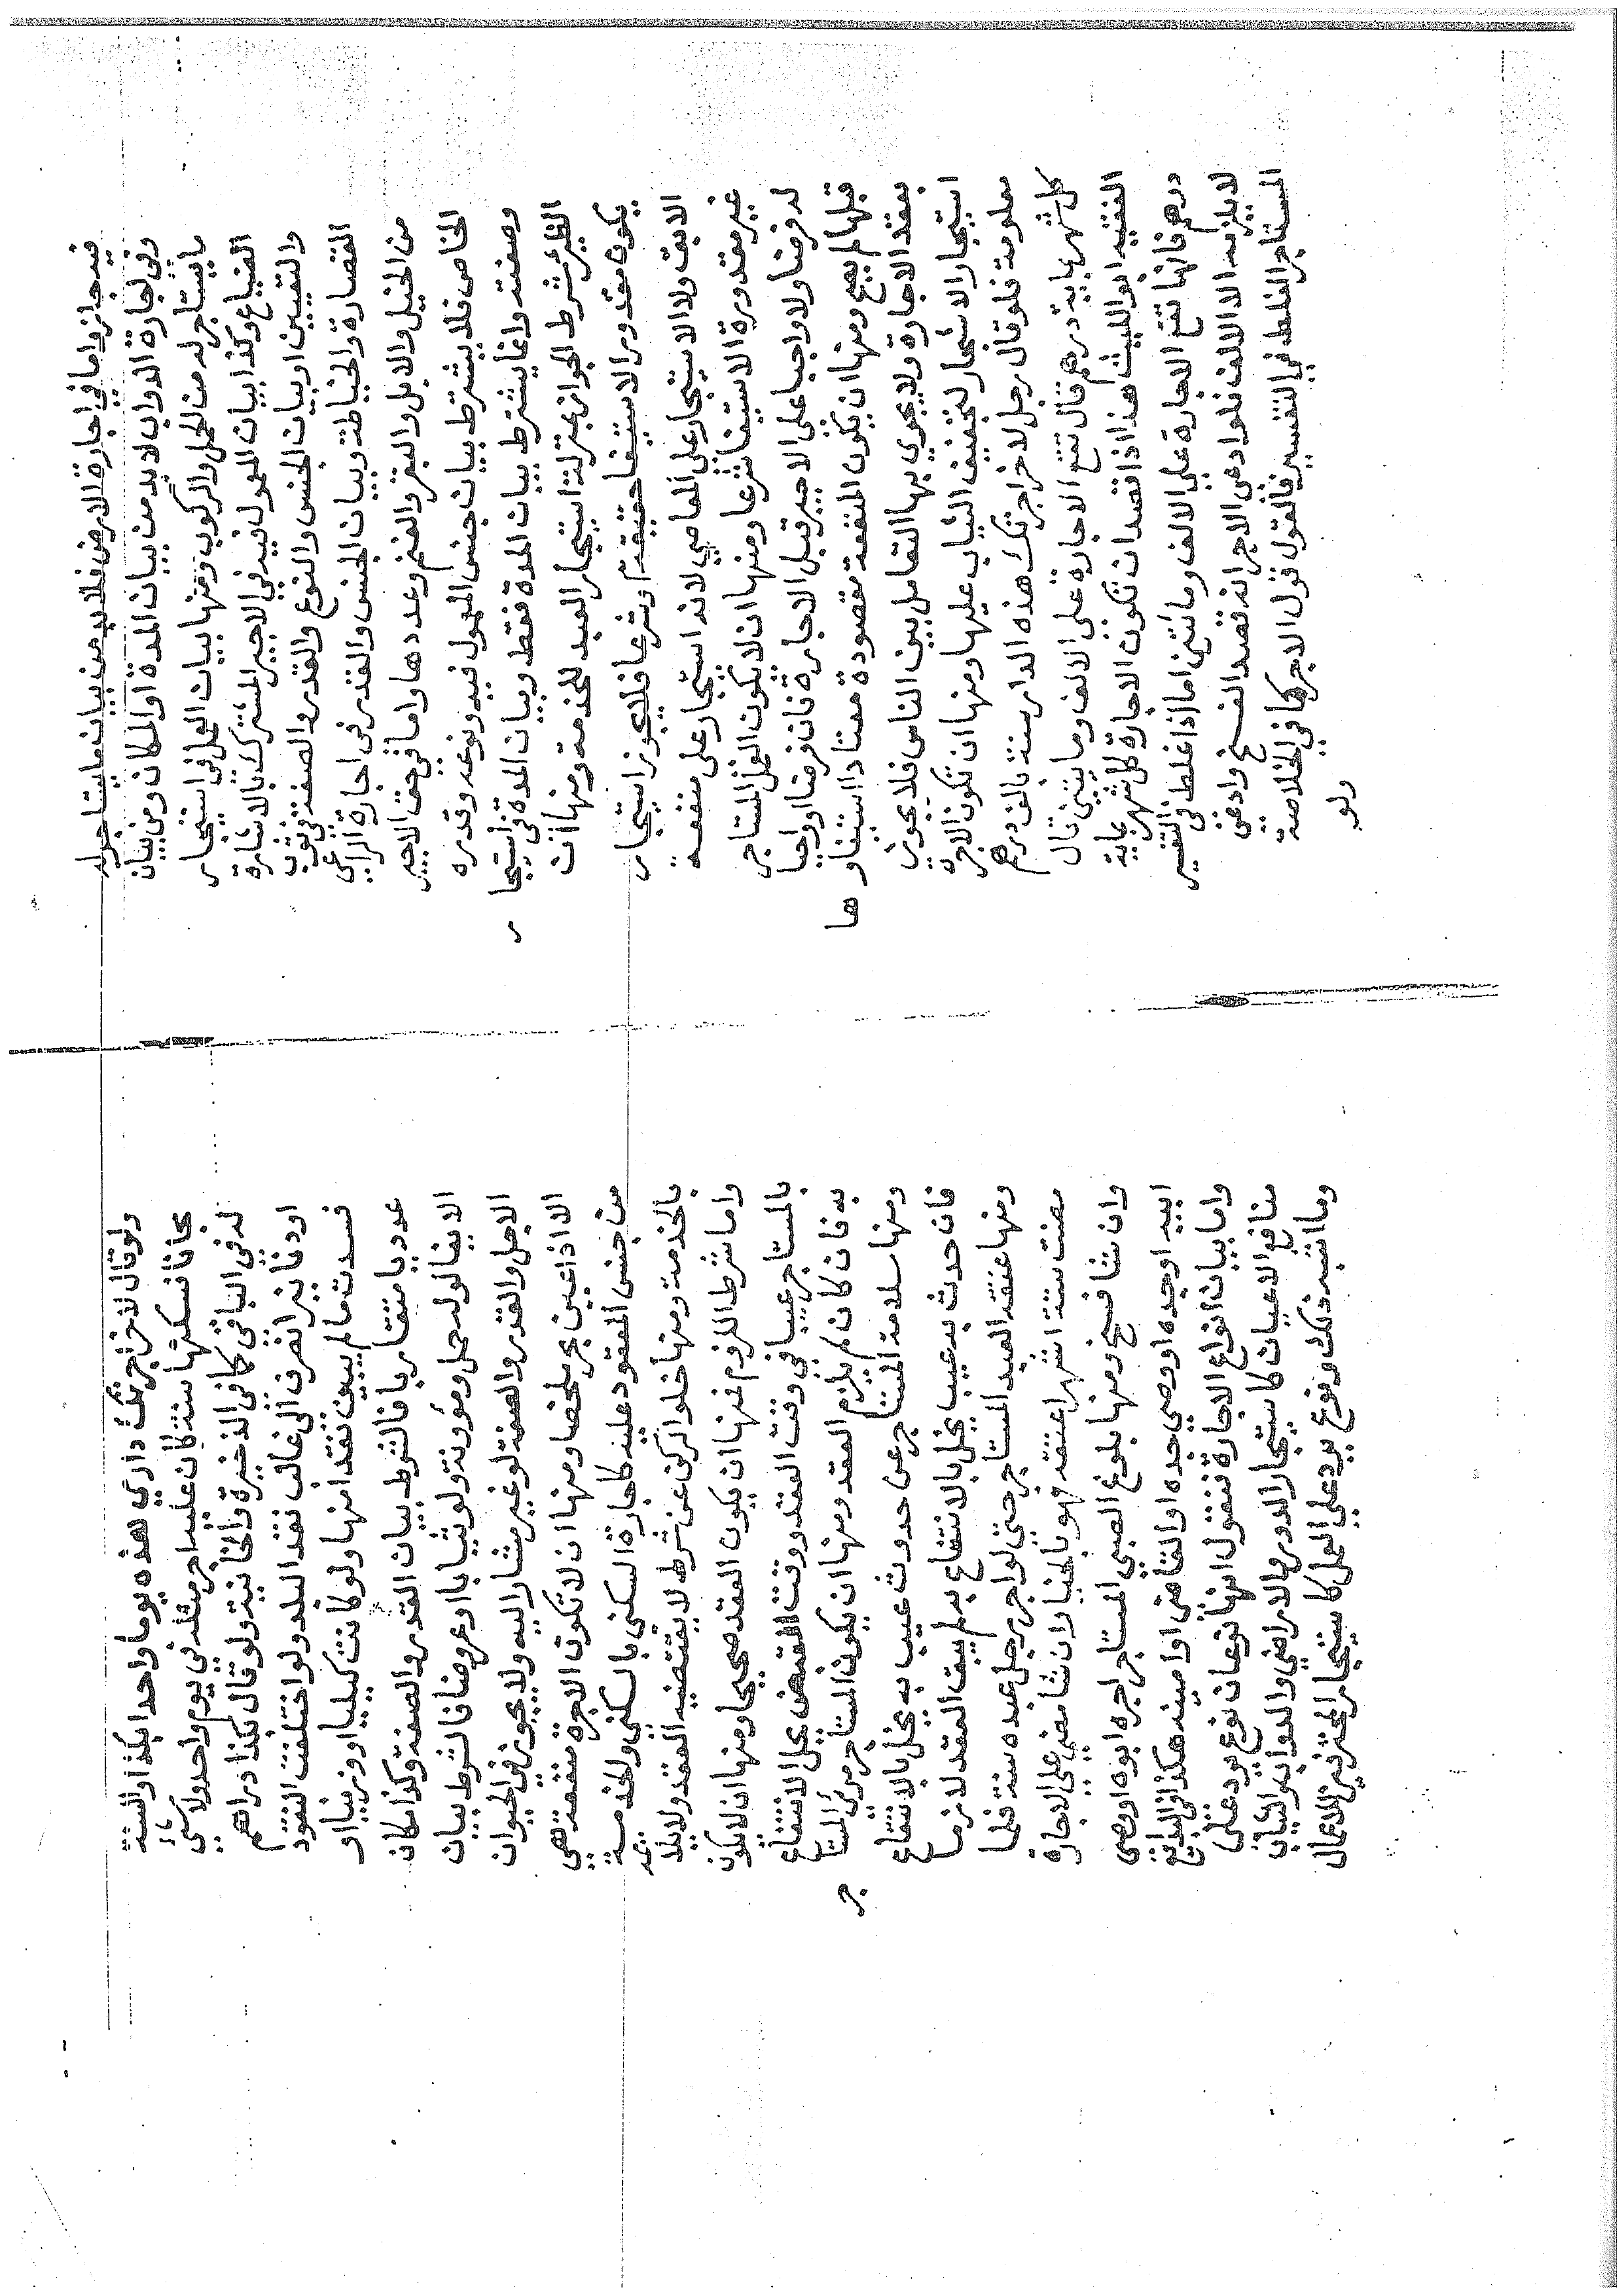 فيه جاز واما في اجارة الارض فلا بد من بيان ما يستاجر له
وفي اجارة الدواب لا بد من بيان المدة او المكان ومن بيان
ما يستاجر له من الحمل والركوب ومنها بيان العمل في استيجار
الضياع وكذا بيان المعمول فيه في الاجير المشترك بالاشارة
والتعيين او بيان الجنس والنوع والقدر والصفة في ثوب
القصارة والخياطة وبيان الجنس والقدر في اجارة الراعي
من الخيل والابل والبقر والغنم وعددها واما في حق الاجير
الخاص فلا يشترط بيان جنس المعمول فيه ونوعه وقدره
وصفته وانما يشترط بيان المدة فقط وبيان المدة في استيجار
الظئر شرط الجواز بمنزلة استيجار العبد للخدمة ومنها ان
يكون مقدور الاستيفا حقيقة وشرعا فلا يجوز استيجار
الابق ولا الاستيجار على المعاصي لانه استيجار على منفعة
غير مقدورة الاستيفا شرعا ومنها ان لا يكون العمل المستاجر
له فرضا ولا واجبا على الاجير قبل الاجارة فان فرضا او واجبا
قبلها لم يصح ومنها ان يكون المنفعة مقصودة معتادا استيفاوها
بعقد الاجارة ولا يجري بها التعامل بين الناس فلا يجوز
استيجار الاشجار لتجفيف الثياب عليها ومنها ان تكون الاجرة
معلومة فلو قال رجل لاخر اجرتك هذه الدار سنة بالف درهم
كل شهر بماية درهم قال تقع الاجارة على الالف ومايتين قال
الفقيه ابو الليث هذا اذا قصد ان تكون الاجارة كل شهر بماية
درهم فانها تقع الاجارة على الالف ومائتين اما اذا غلط في التفسير
لا يلزمه الا الالف فلو ادعى الاجر انه قصد الفسخ وادعى
المستاجر الغلط في التفسير فالقول قول الاجر كما في الخلاصة
ولو
ولو قال لاخر اجرتك داري هذه يوما واحدا بكذا والسنة
مجانا فسكنها سنة كان عليه اجر مثله في يوم واحد ولا شي
له في الباقي كما في الذخيرة والخانية ولو قال بكذا دراهم
او دنانير انصرف الى غالب نقد البلد ولو اختلفت النقود
فسدت ما لم يبين نقدا منها ولو كانت كيليا او وزنيا او
عدديا متقاربا فالشرط بيان القدر والصفة وكذا مكان
الايفا لو له حمل ومؤونة ولو ثيابا او عروضا فالشرط بيان
الاجل والقدر والصفة لو غير مشار اليه ولا يجوز في الحيوان
الا اذا عين بحر ملخصا ومنها ان لا تكون الاجرة منفعة هي
من جنس المعقود عليه كاجارة السكنى بالسكنى والخدمة
بالخدمة ومنها خلو الركن عن شرط لا يقتضيه العقد ولا يلايمه
واما شرط اللزوم فمنها ان يكون العقد صحيحا ومنها ان لا يكون
بالمستاجر عيبا في وقت العقد ووقت القبض يخل الانتفاع
به فان كان لم يلزم العقد ومنها ان يكون المستاجر مرئي المستاجر
ومنها سلامة المستاجر عن حدوث عيب به يخل بالانتفاع
فان حدث به عيب يخل بالانتفاع به لم يبق العقد لازما
ومنها عتق العبد المستاجر حتى لو اجر رجل عبده سنة فلما
مضت ستة اشهر اعتقه فهو بالخيار ان شا مضى على الاجارة
وان شا فسخ ومنها بلوغ الصبي المستاجر اجره ابوه او وصي
ابيه او جده او وصي جده او القاضي او امينه هكذا في البدايع
واما بيان انواع الاجارة فنقول انها نوعان نوع يرد على
منافع الاعيان كاستيجار الدور والاراضي والدواب والثياب
وما اشبه ذلك ونوع يرد على العمل كاستيجار المحترفين للاعمال